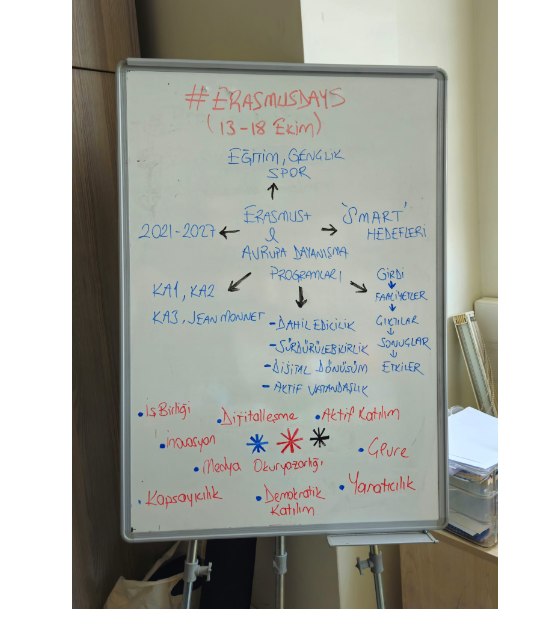 #ERASMUSDAYS
(13-18 Ekim)
EĞİTİM, GENÇLİK
SPOR
ERASMUS+
&
AVRUPA DAYANIŞMA
PROGRAMLARI
'SMART'
HEDEFLERİ
2021-2027
KA1, KA2
KA3, JEAN MONNET
- DAHİL EDİCİLİK
- SÜRDÜRÜLEBİLİRLİK
- DİJİTAL DÖNÜŞÜM
- AKTİF VATANDAŞLIK
GİRDİ
FAALİYETLER
ÇIKTILAR
SONUÇLAR
ETKİLER
• İş Birliği
• Dijitalleşme
• Aktif Katılım
• İnovasyon
• Çevre
• Medya Okuryazarlığı
• Kapsayıcılık
• Demokratik
Katılım
• Yaratıcılık